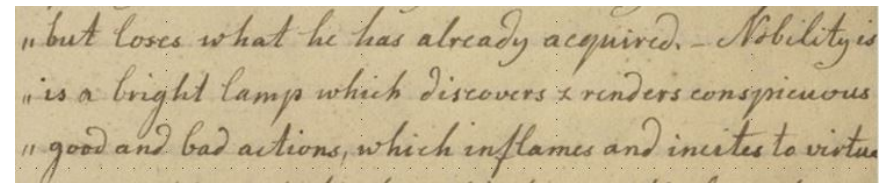 " but loses what he has already acquired. – Nobility is
" is a bright lamp which discovers & renders conspicuous
" good and bad actions, which inflames and incites to virtue